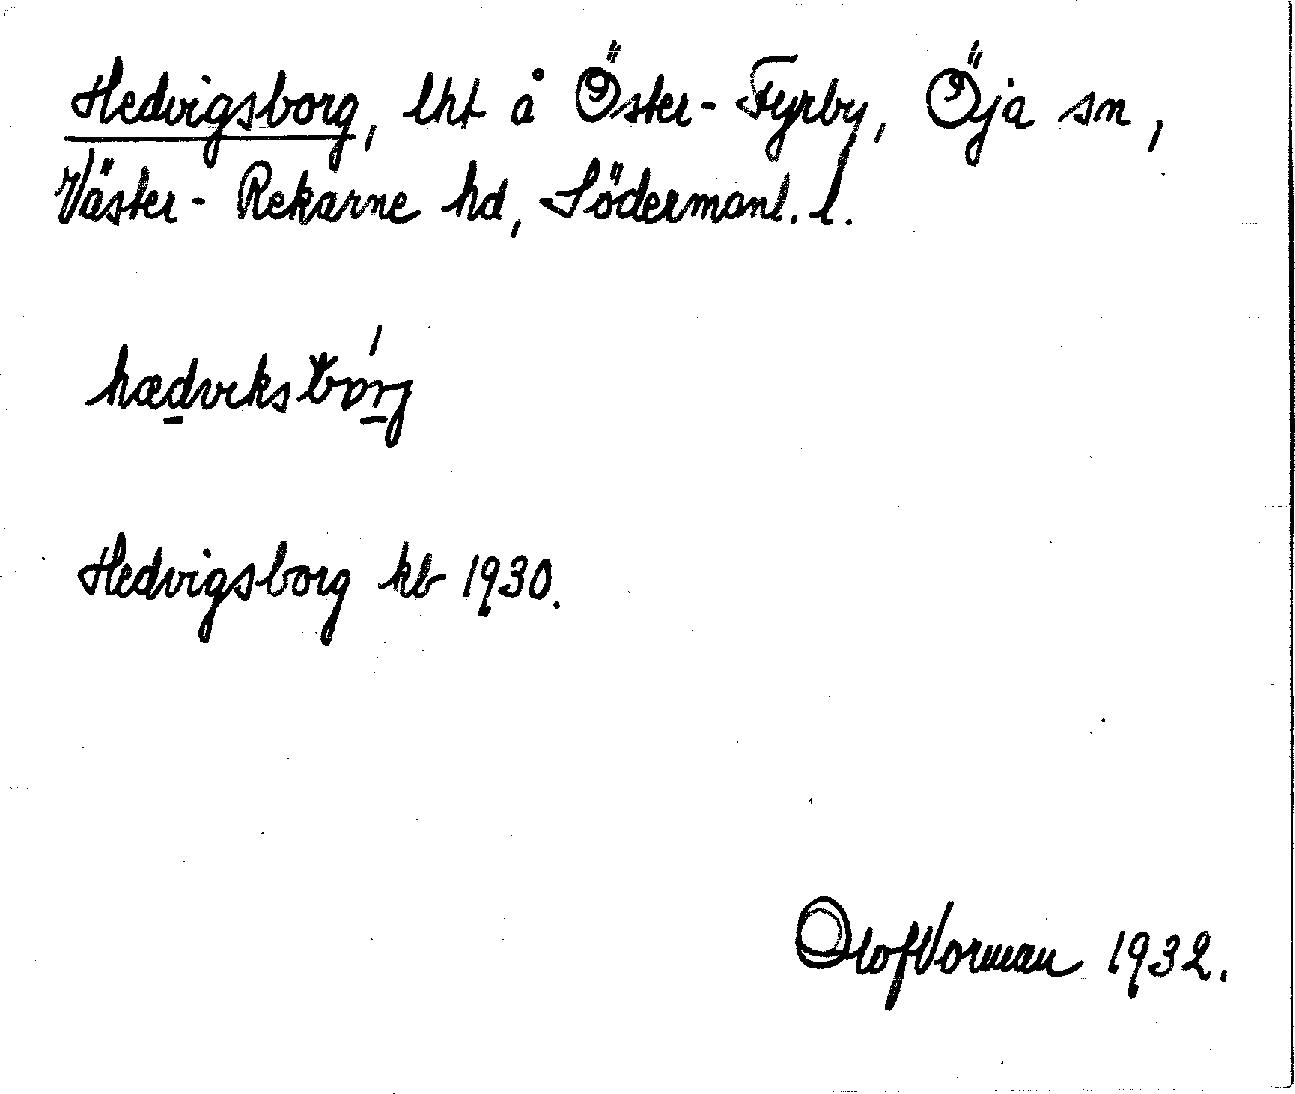 Hedvigsborg, lht å Öster-Fyrby, Öja sn,
Väster-Rekarne hd, Södermanl. l.
hædviksbórj
Hedvigsborg kb 1930.
Olof Vorman 1932.